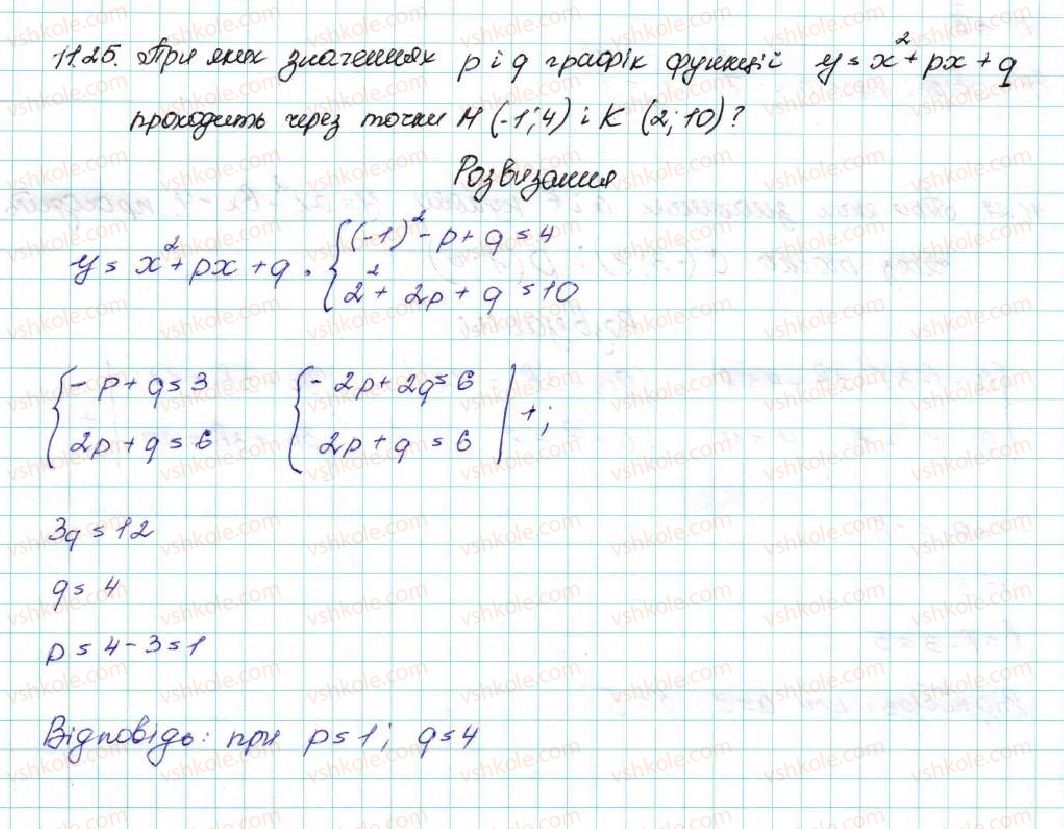 11.25. При яких значеннях p і q графік функцій y = x² + px + q
проходить через точки M (-1; 4) і K (2; 10)?
Розвязання
y = x² + px + q . { (-1)² - p + q = 4
2² + 2p + q = 10
{ - p + q = 3 { - 2p + 2q = 6 | + ;
2p + q = 6 2p + q = 6
3q = 12
q = 4
p = 4 - 3 = 1
Відповідь: при p = 1; q = 4
vshkole.com